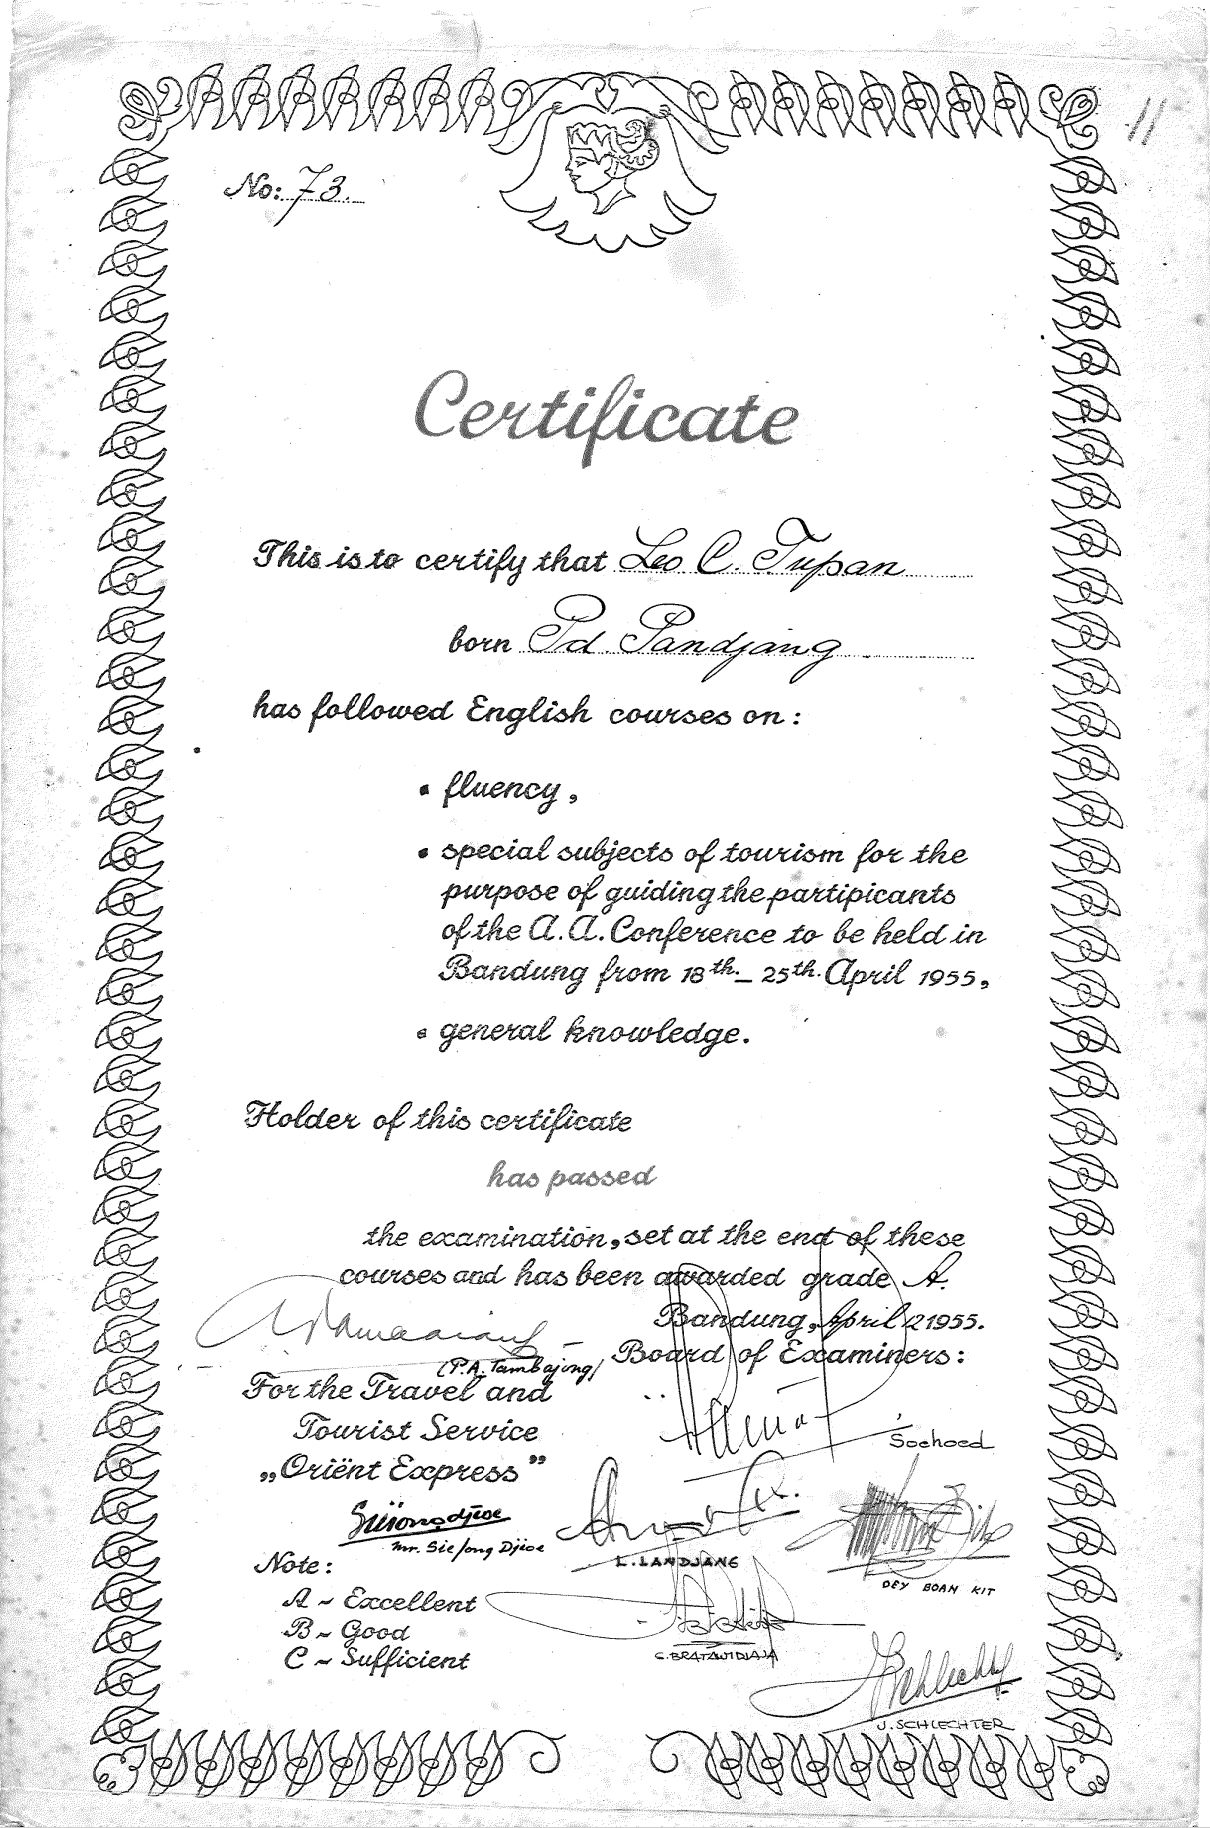 11
No: 73.
Certificate
This is to certify that Leo C. Tupan
born Pd. Pandjang
has followed English courses on:
• fluency,
• special subjects of tourism for the
purpose of guiding the partipicants
of the A.A. Conference to be held in
Bandung from 18th. – 25th. April 1955,
• general knowledge.
Holder of this certificate
has passed
the examination, set at the end of these
courses and has been awarded grade A.
Bandung, April 2 1955.
Board of Examiners:
(P.A. Tambajong)
For the Travel and
Tourist Service
„Oriënt Express”
Soehoed
Mr. Sie Jong Djioe
L. LANDJANG
OEY BOAN KIT
Note:
A ~ Excellent
B ~ Good
C ~ Sufficient
C. BRATAWIDJAJA
J. SCHLECHTER